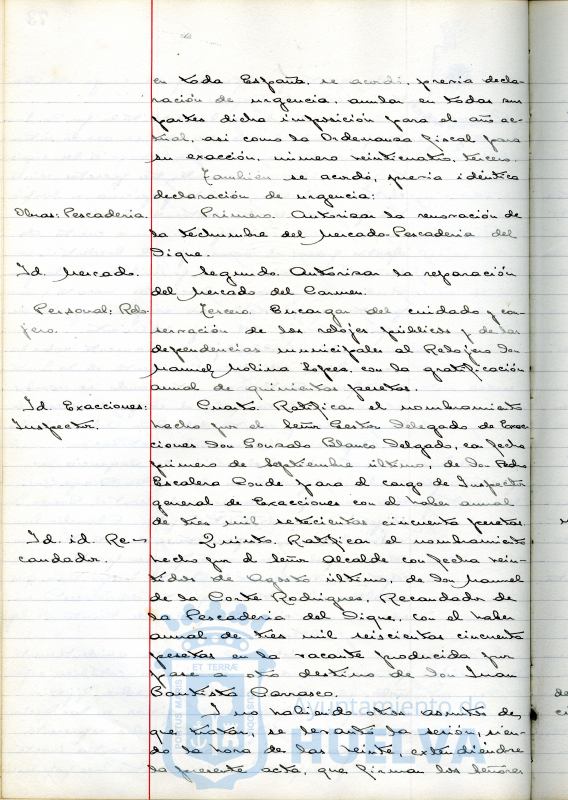 en toda España, se acordó, previa decla-
ración de urgencia, anular en todas sus
partes dicha imposición para el año ac-
tual, asi como la Ordenanza fiscal para
su exacción, número veinticuatro, tercero.
También se acordó, previa idéntica
declaración de urgencia:
Obras: Pescaderia.
Primero. Autorizar la renovación de
la techumbre del Mercado-Pescaderia del
Dique.
Id. Mercado.
Segundo. Autorizar la reparación
del Mercado del Carmen.
Personal: Relo-
jero.
Tercero. Encargar del cuidado y con-
servación de los relojes públicos y de las
dependencias municipales al Relojero don
Manuel Molina Lopez, con la gratificación
anual de quinientas pesetas.
Id. Exacciones:
Inspector.
Cuarto. Ratificar el nombramiento
hecho por el Señor Gestor Delegado de Exac-
ciones don Gonzalo Blanco Delgado, con fecha
primero de Septiembre último, de don Pedro
Escalera Conde para el cargo de Inspector
general de Exacciones con el haber anual
de tres mil setecientas cincuenta pesetas.
Id. id. Re-
caudador.
Quinto. Ratificar el nombramiento
hecho por el Señor Alcalde con fecha vein-
tidos de Agosto último, de don Manuel
de la Corte Rodrigues, Recaudador de
la Pescaderia del Dique, con el haber
anual de tres mil seiscientas cincuenta
pesetas en la vacante producida por
pase a otro destino de don Juan
Bautista Carrasco.
Y no habiendo otros asuntos de
que tratar, se levantó la sesión, sien-
do la hora de las veinte, extendiendose
la presente acta, que firman los señores
PORTUS MARIS ET TERRÆ CUSTODIA
Ayuntamiento de
HUELVA